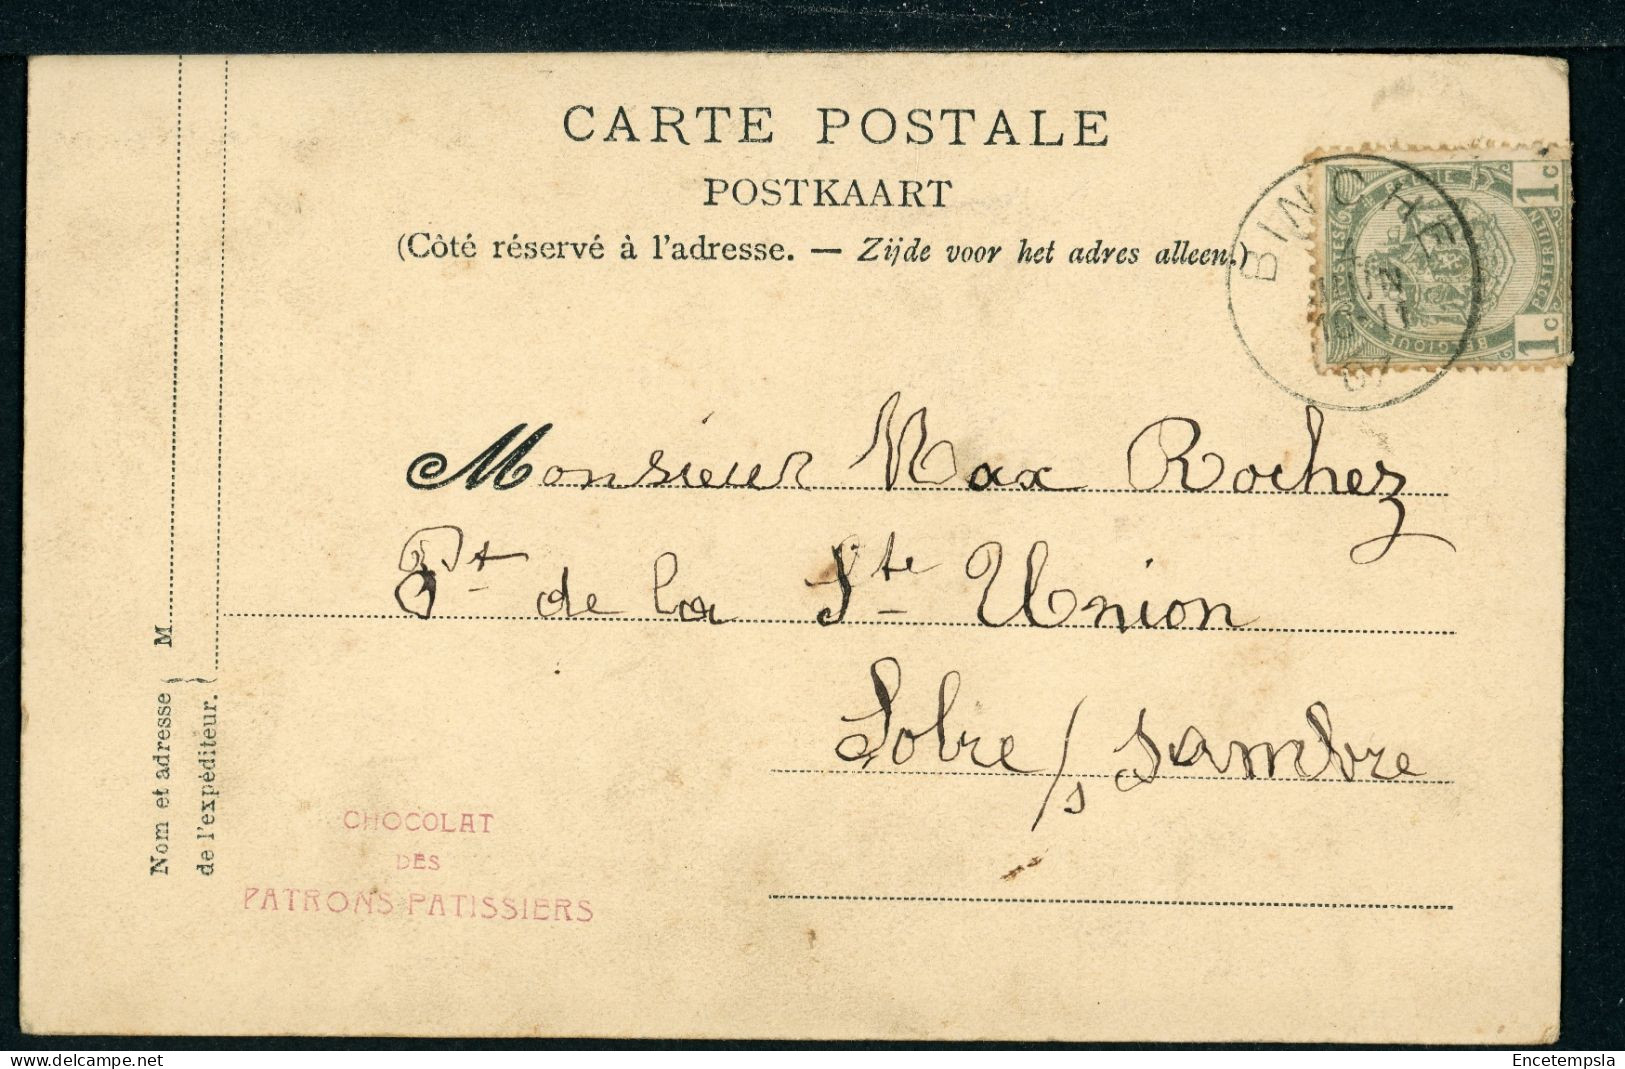 CARTE POSTALE
POSTKAART
(Côté réservé à l'adresse. — Zijde voor het adres alleen.)
BINCHE
10-11
07
1c
1c
POSTES
BELGIQUE
POSTERIJEN
Monsieur Max Rochez
Pt de la Ste Union
Solre s/ Sambre
Nom et adresse
de l'expéditeur.
M
CHOCOLAT
DES
PATRONS PATISSIERS
delcampe.net
Encetempsla